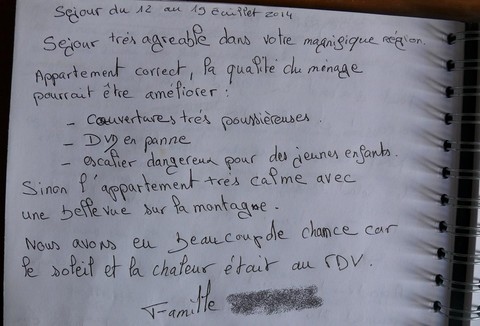 Séjour du 12 au 19 Juillet 2014
Séjour très agréable dans votre magnifique région.
Appartement correct, la qualité du ménage
pourrait être améliorer :
- Couvertures très poussièreuses.
- DVD en panne
- escalier dangereux pour des jeunes enfants.
Sinon l'appartement très calme avec
une belle vue sur la montagne.
Nous avons eu beaucoup de chance car
le soleil et la chaleur était au RDV.
Famille